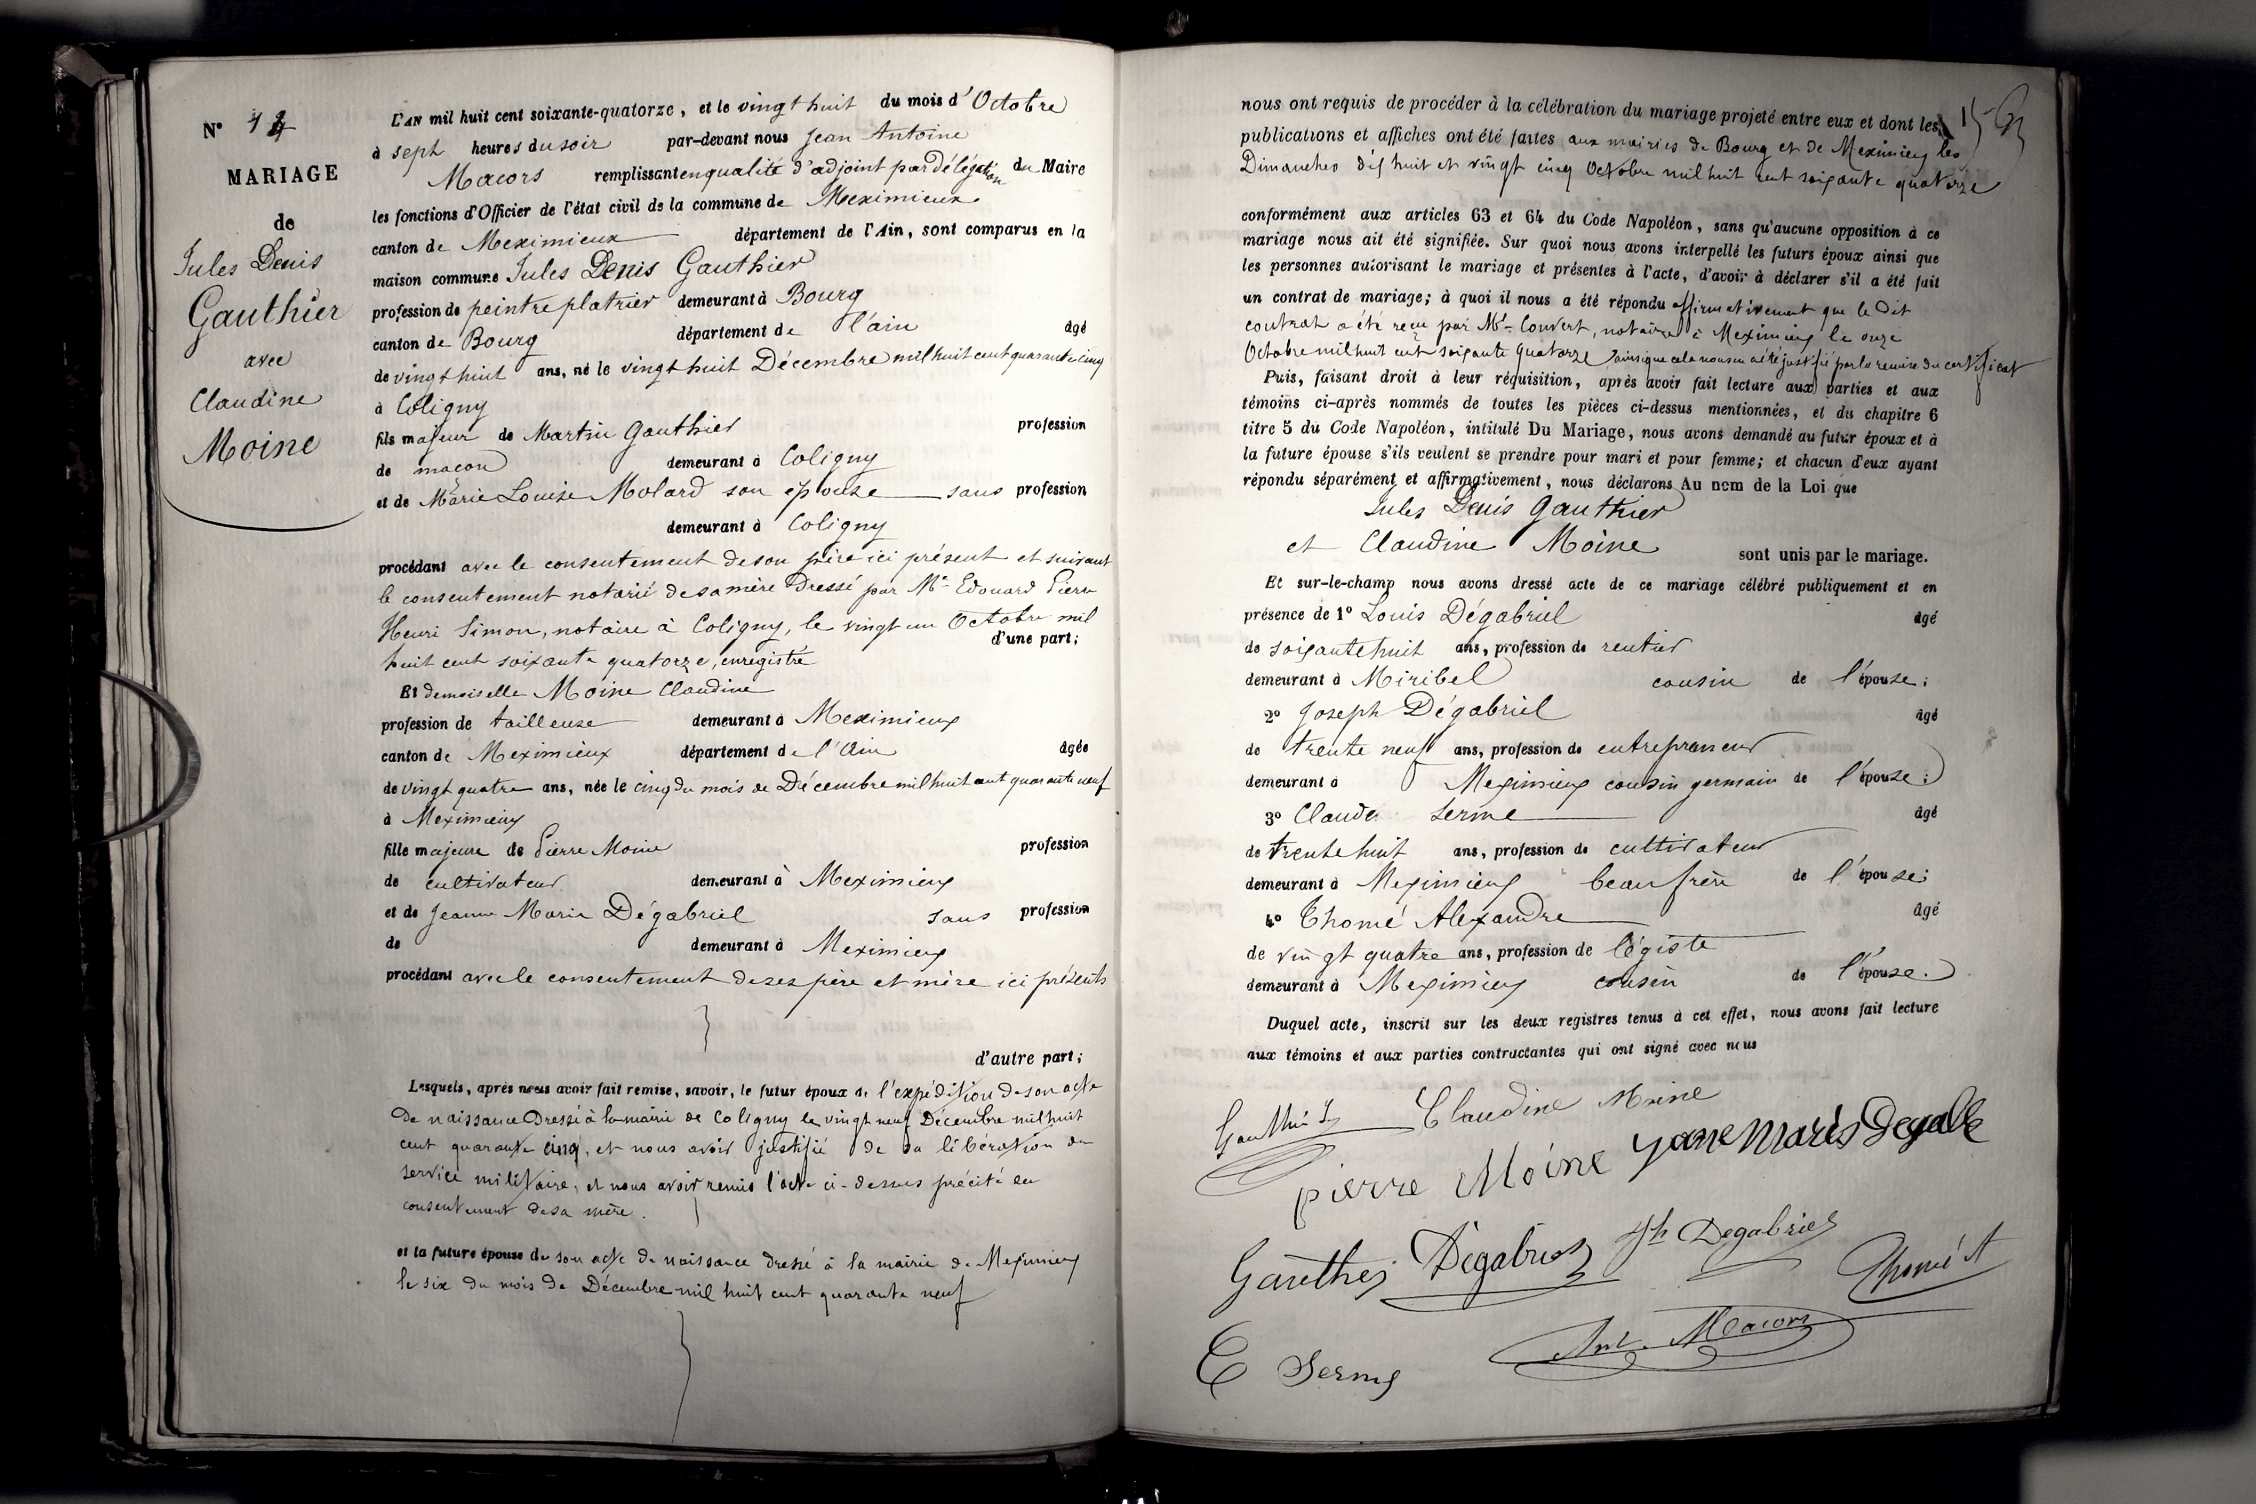 N° 14
MARIAGE
de
Jules Denis
Gauthier
avec
Claudine
Moine
L'AN mil huit cent soixante-quatorze, et le vingt huit du mois d'Octobre
à sept heures du soir par-devant nous Jean Antoine
Macors remplissant en qualité d'adjoint par délégation du Maire
les fonctions d'Officier de l'état civil de la commune de Meximieux
canton de Meximieux département de l'Ain, sont comparus en la
maison commune Jules Denis Gauthier
profession de peintre platrier demeurant à Bourg
canton de Bourg département de l'ain âgé
de vingt huit ans, né le vingt huit Décembre mil huit cent quarante cinq
à Coligny
fils majeur de Martin Gauthier profession
de maçon demeurant à Coligny
et de Marie Louise Molard son épouse sans profession
demeurant à Coligny
procédant avec le consentement de son père ici présent et suivant
le consentement notarié de sa mère dressé par Me Edouard Pierre
Henri Simon, notaire à Coligny, le vingt un Octobre mil
d'une part;
huit cent soixante quatorze, enregistré
Et demoiselle Moine Claudine
profession de tailleuse demeurant à Meximieux
canton de Meximieux département de l'Ain âgée
de vingt quatre ans, née le cinq du mois de Décembre mil huit cent quarante neuf
à Meximieux
fille majeure de Pierre Moine profession
de cultivateur demeurant à Meximieux
et de Jeanne Marie Dégabriel sans profession
de demeurant à Meximieux
procédant avec le consentement de ses père et mère ici présents
d'autre part;
Lesquels, après nous avoir fait remise, savoir, le futur époux de l'expédition de son acte
de naissance dressé à la mairie de Coligny le vingt neuf Décembre mil huit
cent quarante cinq, et nous avoir justifié de sa libération du
service militaire, et nous avoir remis l'acte ci-dessus précité du
consentement de sa mère.
et la future épouse de son acte de naissance dressé à la mairie de Meximieux
le six du mois de Décembre mil huit cent quarante neuf
nous ont requis de procéder à la célébration du mariage projeté entre eux et dont les
publications et affiches ont été faites aux mairies de Bourg et de Meximieux les
Dimanches dix huit et vingt cinq Octobre mil huit cent soixante quatorze
conformément aux articles 63 et 64 du Code Napoléon, sans qu'aucune opposition à ce
mariage nous ait été signifiée. Sur quoi nous avons interpellé les futurs époux ainsi que
les personnes autorisant le mariage et présentes à l'acte, d'avoir à déclarer s'il a été fait
un contrat de mariage; à quoi il nous a été répondu affirmativement que le dit
contrat a été reçu par Me Convert, notaire à Meximieux le onze
Octobre mil huit cent soixante quatorze ainsi que cela nous en a été justifié par la remise du certificat
Puis, faisant droit à leur réquisition, après avoir fait lecture aux parties et aux
témoins ci-après nommés de toutes les pièces ci-dessus mentionnées, et du chapitre 6
titre 5 du Code Napoléon, intitulé Du Mariage, nous avons demandé au futur époux et à
la future épouse s'ils veulent se prendre pour mari et pour femme; et chacun d'eux ayant
répondu séparément et affirmativement, nous déclarons Au nom de la Loi que
Jules Denis Gauthier
et Claudine Moine sont unis par le mariage.
Et sur-le-champ nous avons dressé acte de ce mariage célébré publiquement et en
présence de 1° Louis Dégabriel âgé
de soixante huit ans, profession de rentier
demeurant à Miribel cousin de l'épouse;
2° Joseph Dégabriel âgé
de trente neuf ans, profession de entrepreneur
demeurant à Meximieux cousin germain de l'épouse;
3° Claude Serme âgé
de trente huit ans, profession de cultivateur
demeurant à Meximieux beau frère de l'épouse;
4° Thomé Alexandre âgé
de vingt quatre ans, profession de légiste
demeurant à Meximieux cousin de l'épouse.
Duquel acte, inscrit sur les deux registres tenus à cet effet, nous avons fait lecture
aux témoins et aux parties contractantes qui ont signé avec nous
Gauthier J Claudine Moine
pierre Moine
Gauthier Dégabriel Jh Degabriel Thomé A
Ant. Macors
C Serme